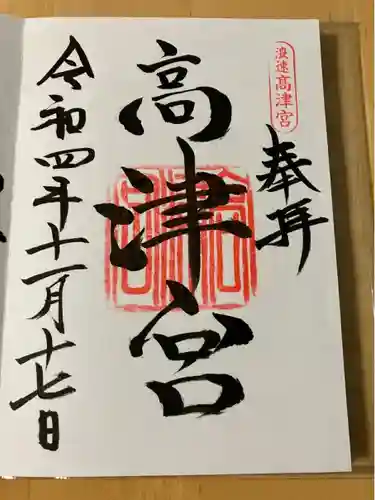 浪速高津宮
奉拝
高津宮
令和四年十一月十七日